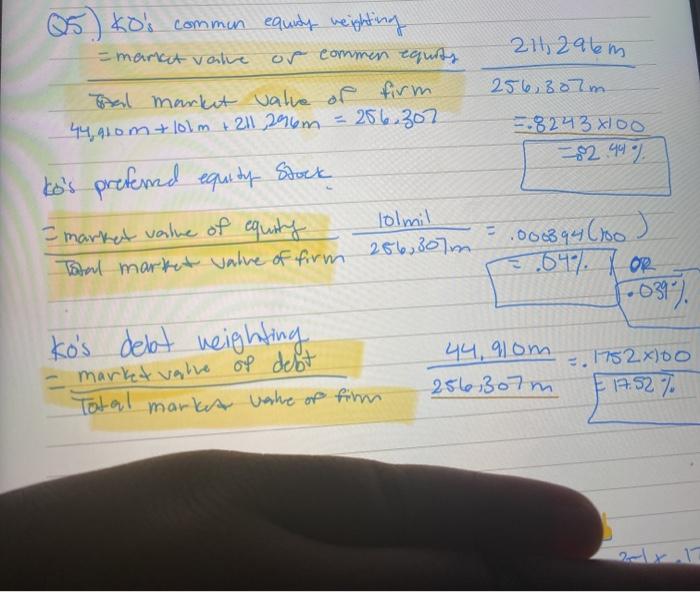 Q5) KO's common equity weighting
= market value of common equity
Total market value of firm
44,910m + 101m + 211,296m = 256,307
211,296m
256,307m
= .8243 x100
= 82.44%
ko's preferred equity Stock
= market value of equity
Total market value of firm
101mil
256,307m
= .000394(100)
= .04%
OR
.039%
KO's debt weighting
= market value of debt
Total market value of firm
44,910m
256,307m
= .1752x100
= 17.52%